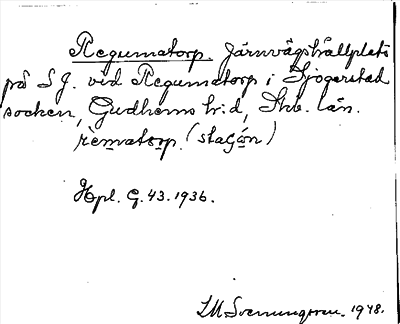 Regumatorp. Järnvägshållplats
på S J. vid Regumatorp i Sjogerstad
socken, Gudhems h:d, Skb. län.
rematorp. (stasjón)
Hpl. G. 43. 1936.
I.M. Svenungsson. 1948.